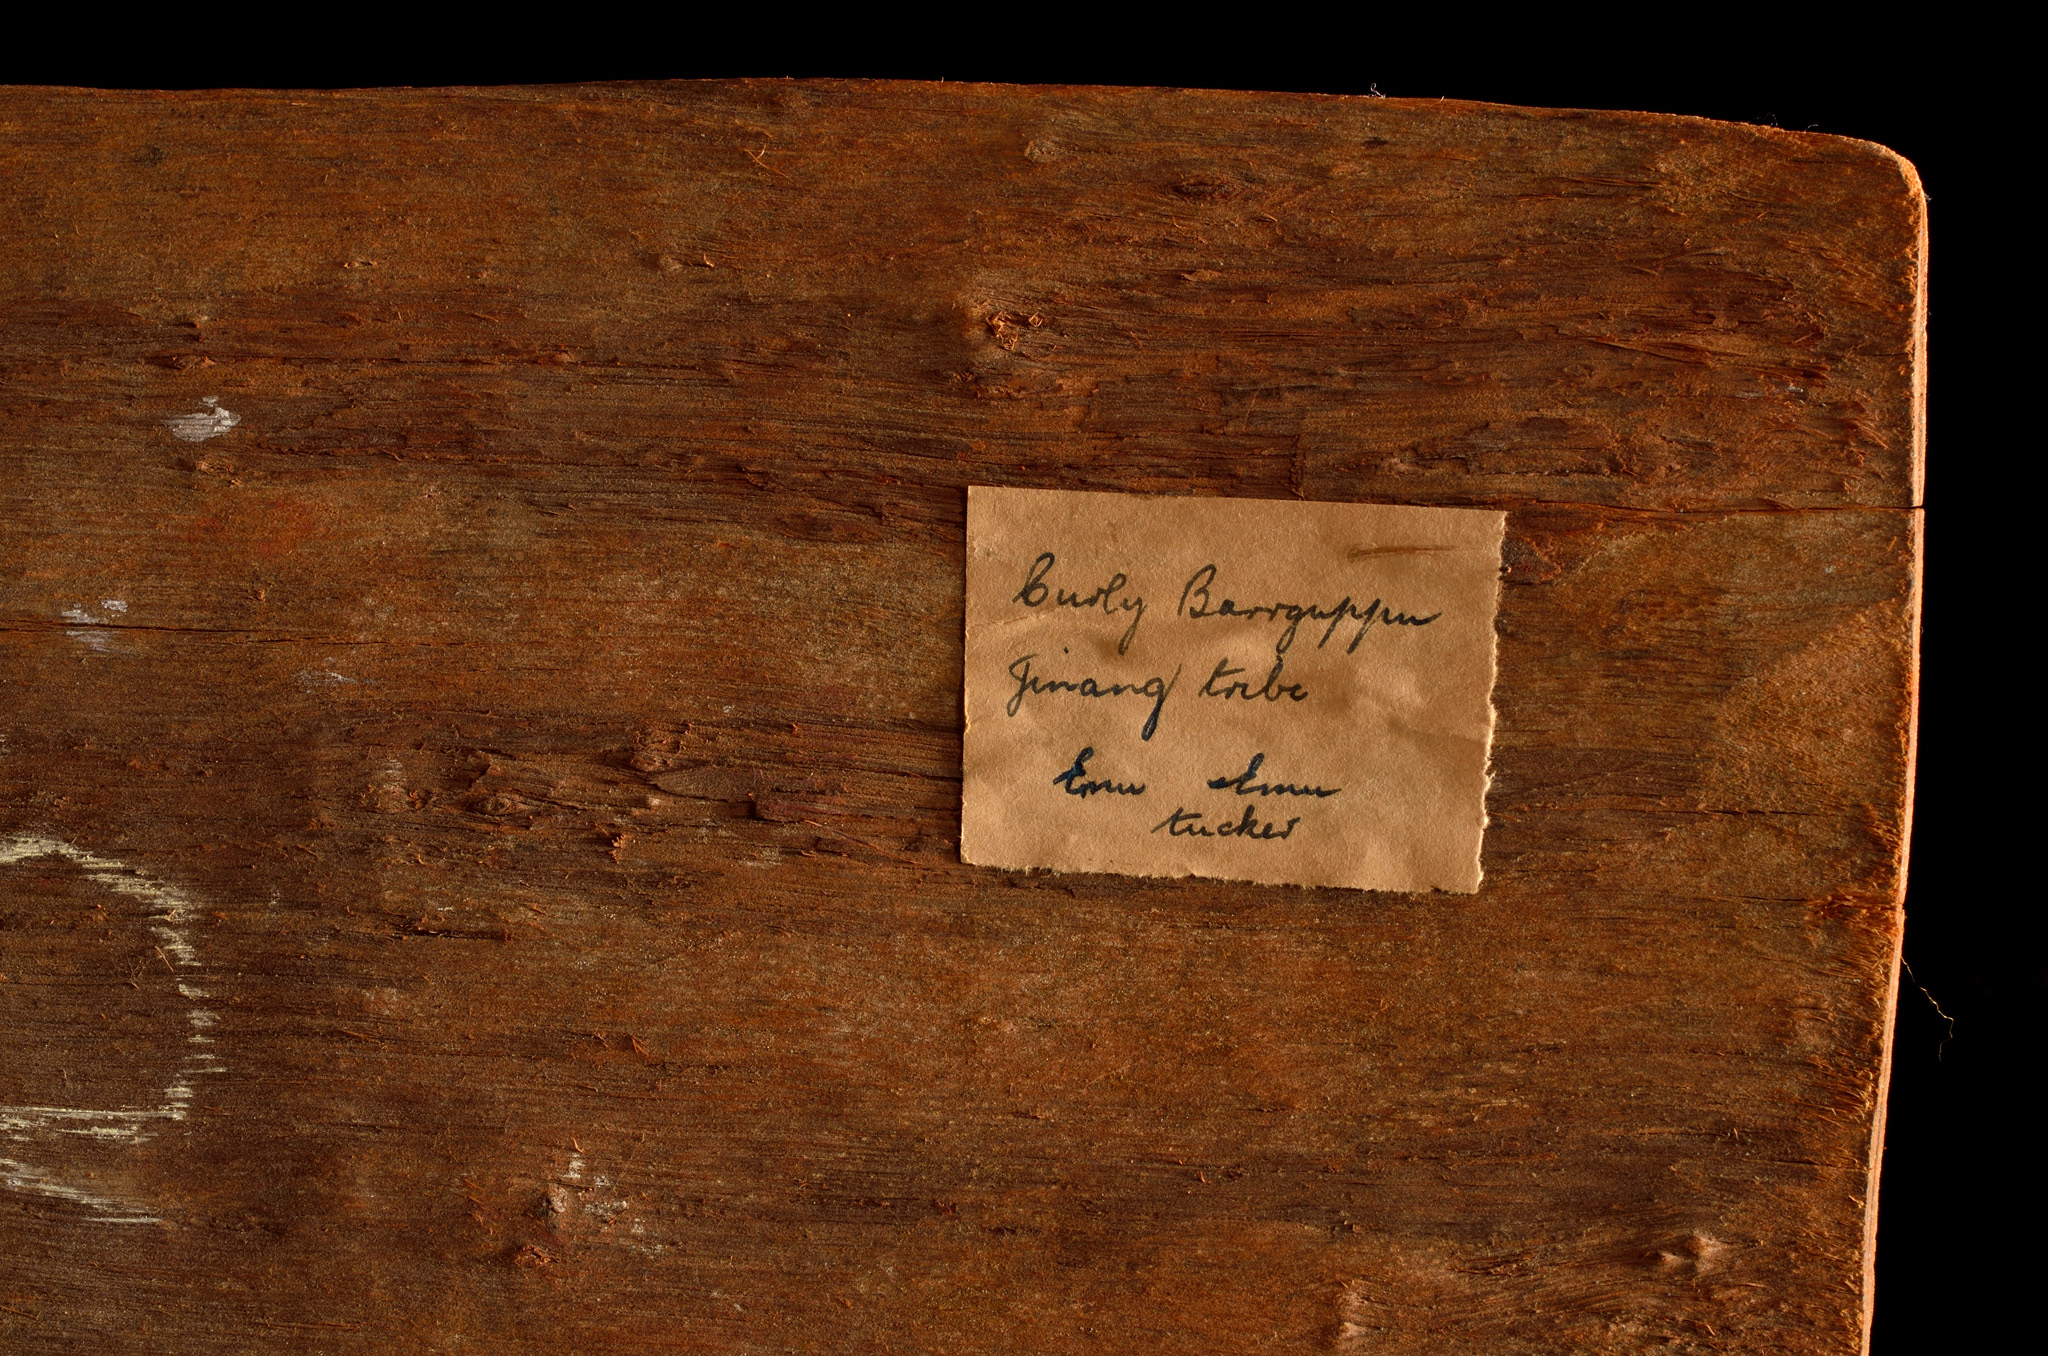 Curly Barrguppu
Jinang tribe
Emu Emu
tucker